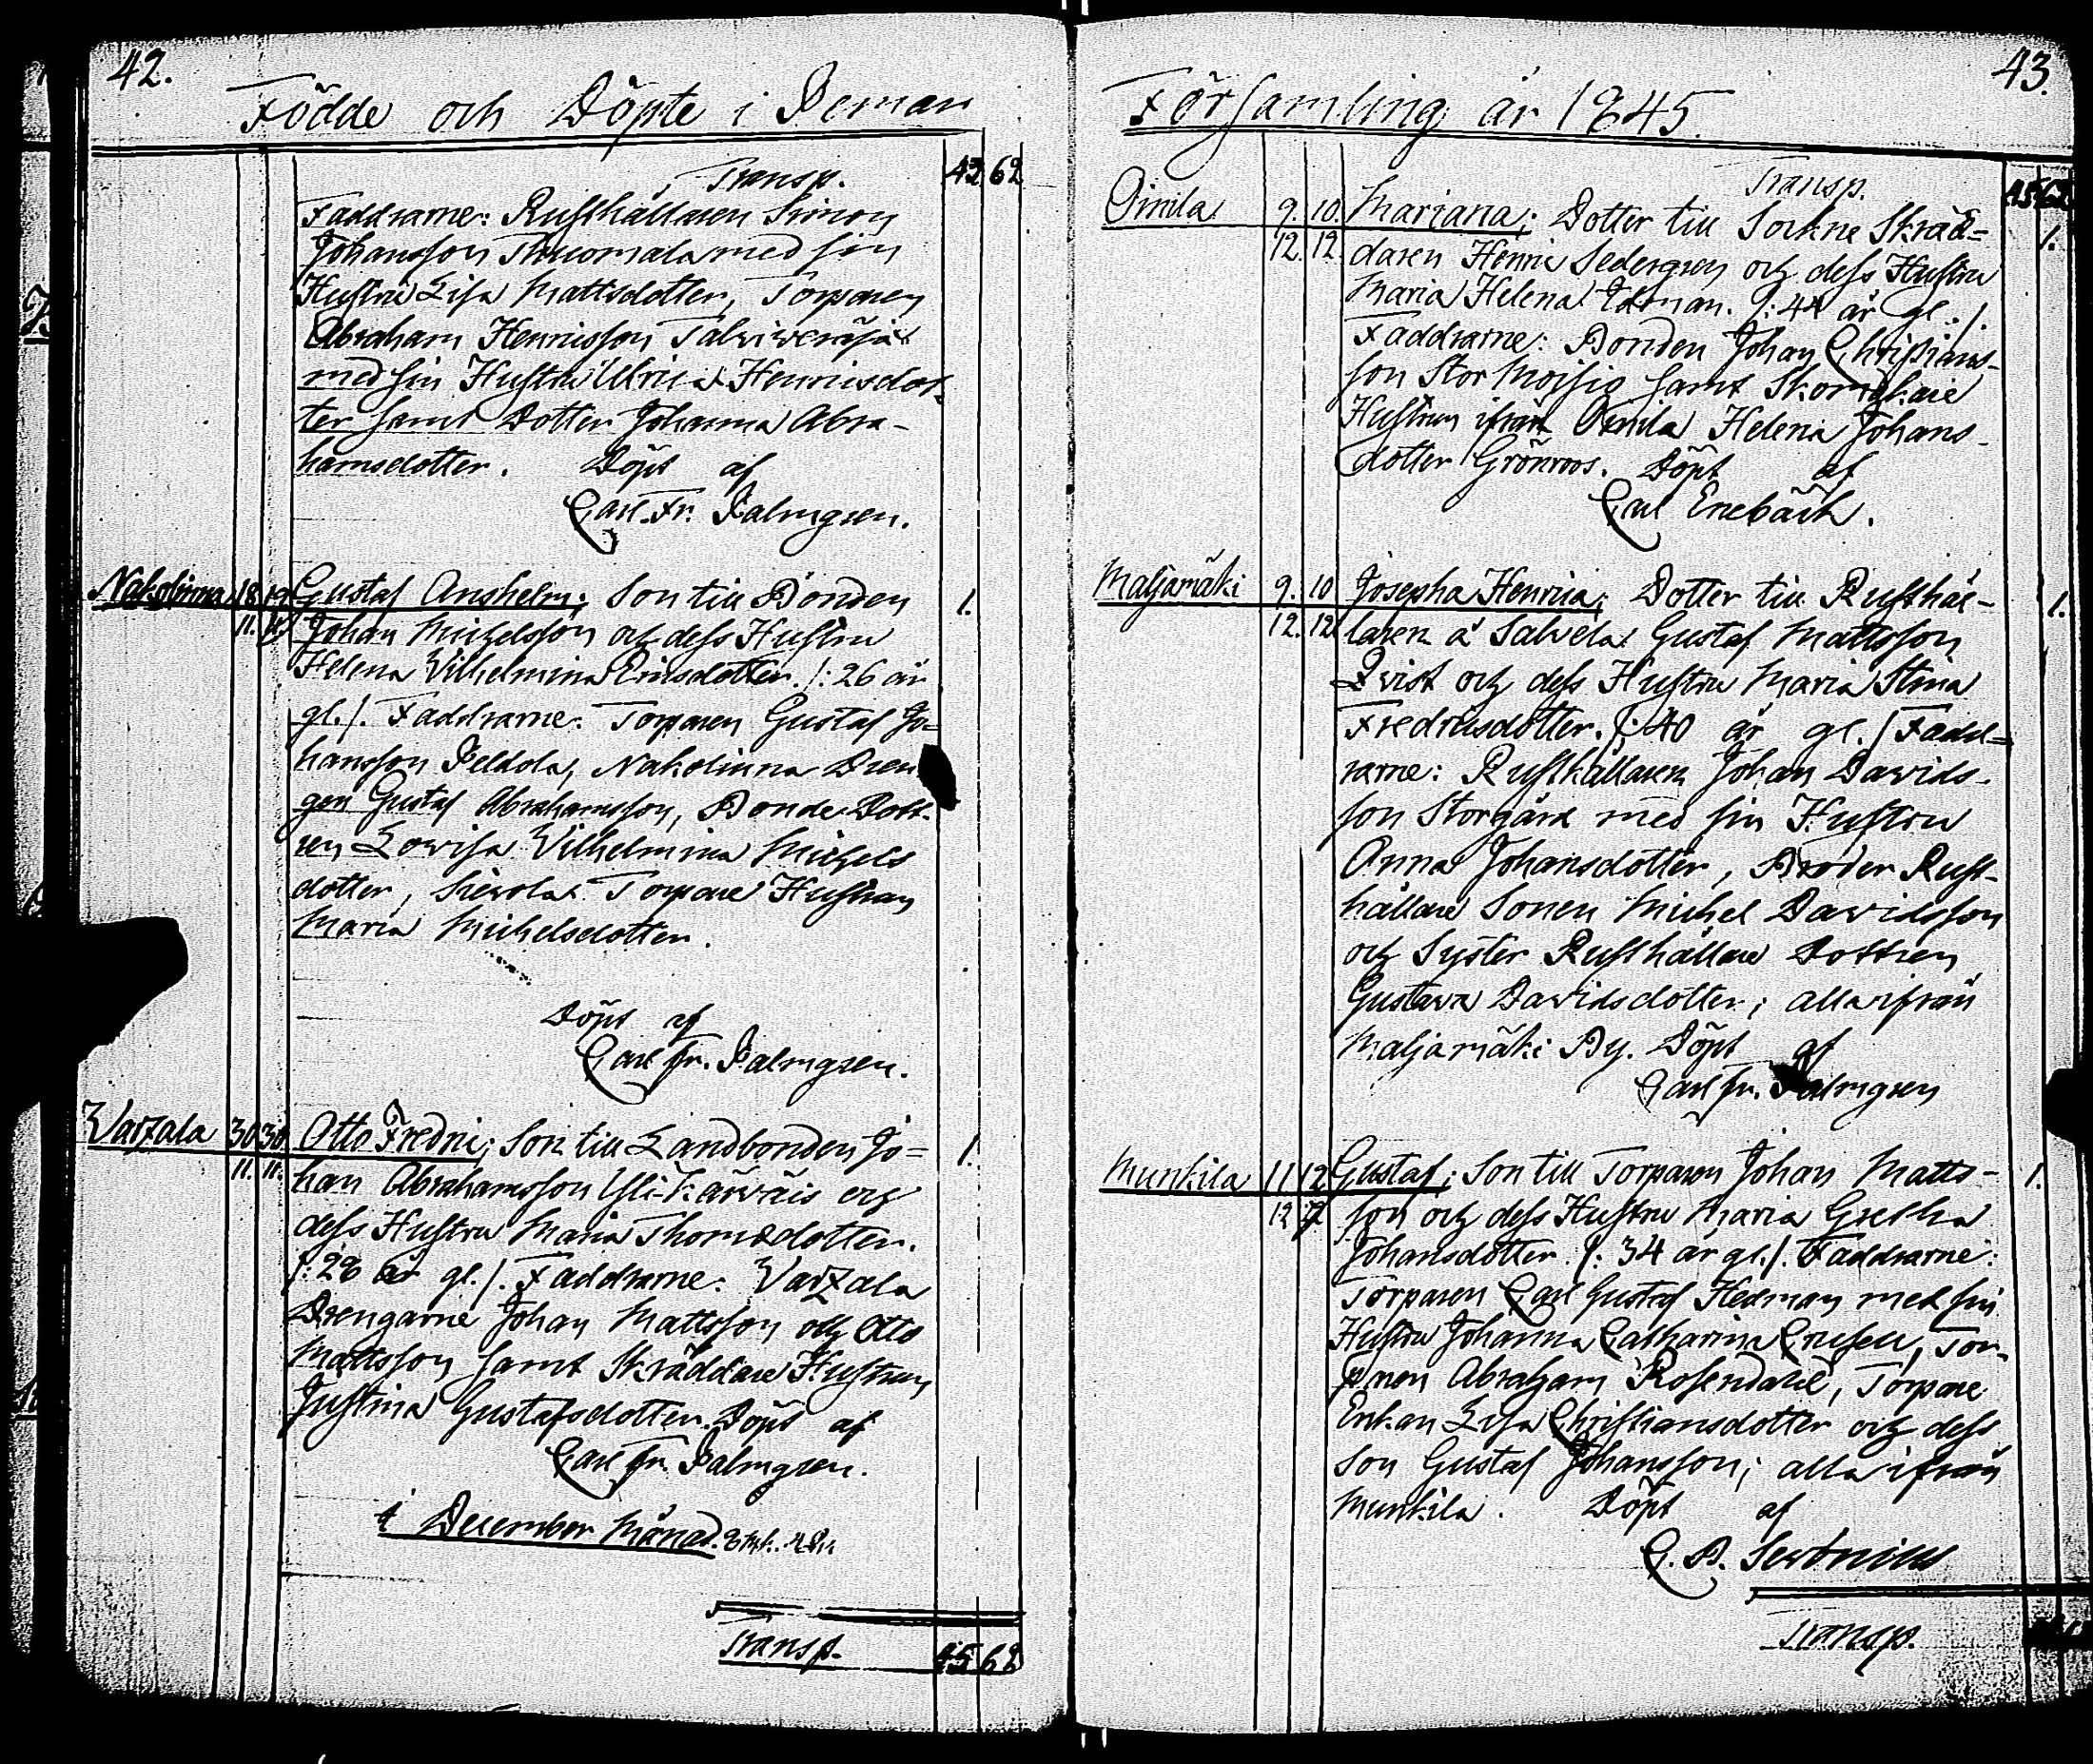 42.
Födde och Döpte i Pemar
Transp. 42 62
Faddrarne: Rusthållaren Simon
Johansson Thuomala med sin
Hustru Lisa Mattsdotter, Torparen
Abraham Henricsson
med sin Hustru Ulrica Henricsdot-
ter samt Dotter Johanna Abra-
hamsdotter. Döpt af
Carl Fr. Palmgren.
Nakolinna 18 19 Gustaf Anshelm; Son till Bonden 1.
11. 11 Johan Michelsson och dess Hustru
Helena Vilhelmina Ericsdotter. /: 26 år
gl. /. Faddrarne: Torparen Gustaf Jo-
hansson Peldola, Nakolinna Dren
gen Gustaf Abrahamsson, Bonde Dott-
ren Lovisa Vilhelmina Michels
dotter, Torpare Hustrun
Maria Michelsdotter.
Döpt af
Carl Fr. Palmgren.
Warzala 30 30 Otto Fredric; Son till Landbonden Jo- 1.
11. 11. han Abrahamsson Yli-Kärväis och
dess Hustru Maria Thomedotter.
/: 28 år gl. /. Faddrarne: Varzala
Drengarne Johan Mattsson och Otto
Mattsson samt Skräddare Hustrun
Justina Gustafsdotter. Döpt af
Carl Fr. Palmgren.
i December Månad.
Transp. 45 62
43.
Församling år 1845.
Transp. 45 62
Oinila 9. 10. Mariana; Dotter till Sockne Skräd- 1.
12. 12. daren Henric Sedergren och dess Hustru
Maria Helena Edman. /: 44 år gl. /.
Faddrarne: Bonden Johan Christians-
son Stor Moisio samt Skomakare
Hustrun ifrån Oinila Helena Johans-
dotter Grönroos. Döpt af
Carl Enebäck.
Maljamäki 9. 10 Josepha Henrica; Dotter till Rusthål- 1.
12. 12. laren å Salvela Gustaf Mattsson
Qvist och dess Hustru Maria Stina
Fredricsdotter. /: 40 år gl. / Fadd-
rarne: Rusthållaren Johan Davids-
son Storgård med sin Hustru
Anna Johansdotter, Broder Rust-
hållare Sonen Michel Davidsson
och Syster Rusthållare Dottren
Gustava Davidsdotter; alla ifrån
Maljamäki By. Döpt af
Carl Fr. Palmgren
Munkila 11 12 Gustaf; Son till Torparen Johan Matts- 1.
12 12 son och dess Hustru Maria Gretha
Johansdotter /: 34 år gl. /. Faddrarne:
Torparen Carl Gustaf Hedman med sin
Hustru Johanna Catharina Crusell, Tor-
paren Abraham Rosendahl, Torpare
Enkan Lisa Christiansdotter och dess
Son Gustaf Johansson; alla ifrån
Munkila. Döpt af
Transp.